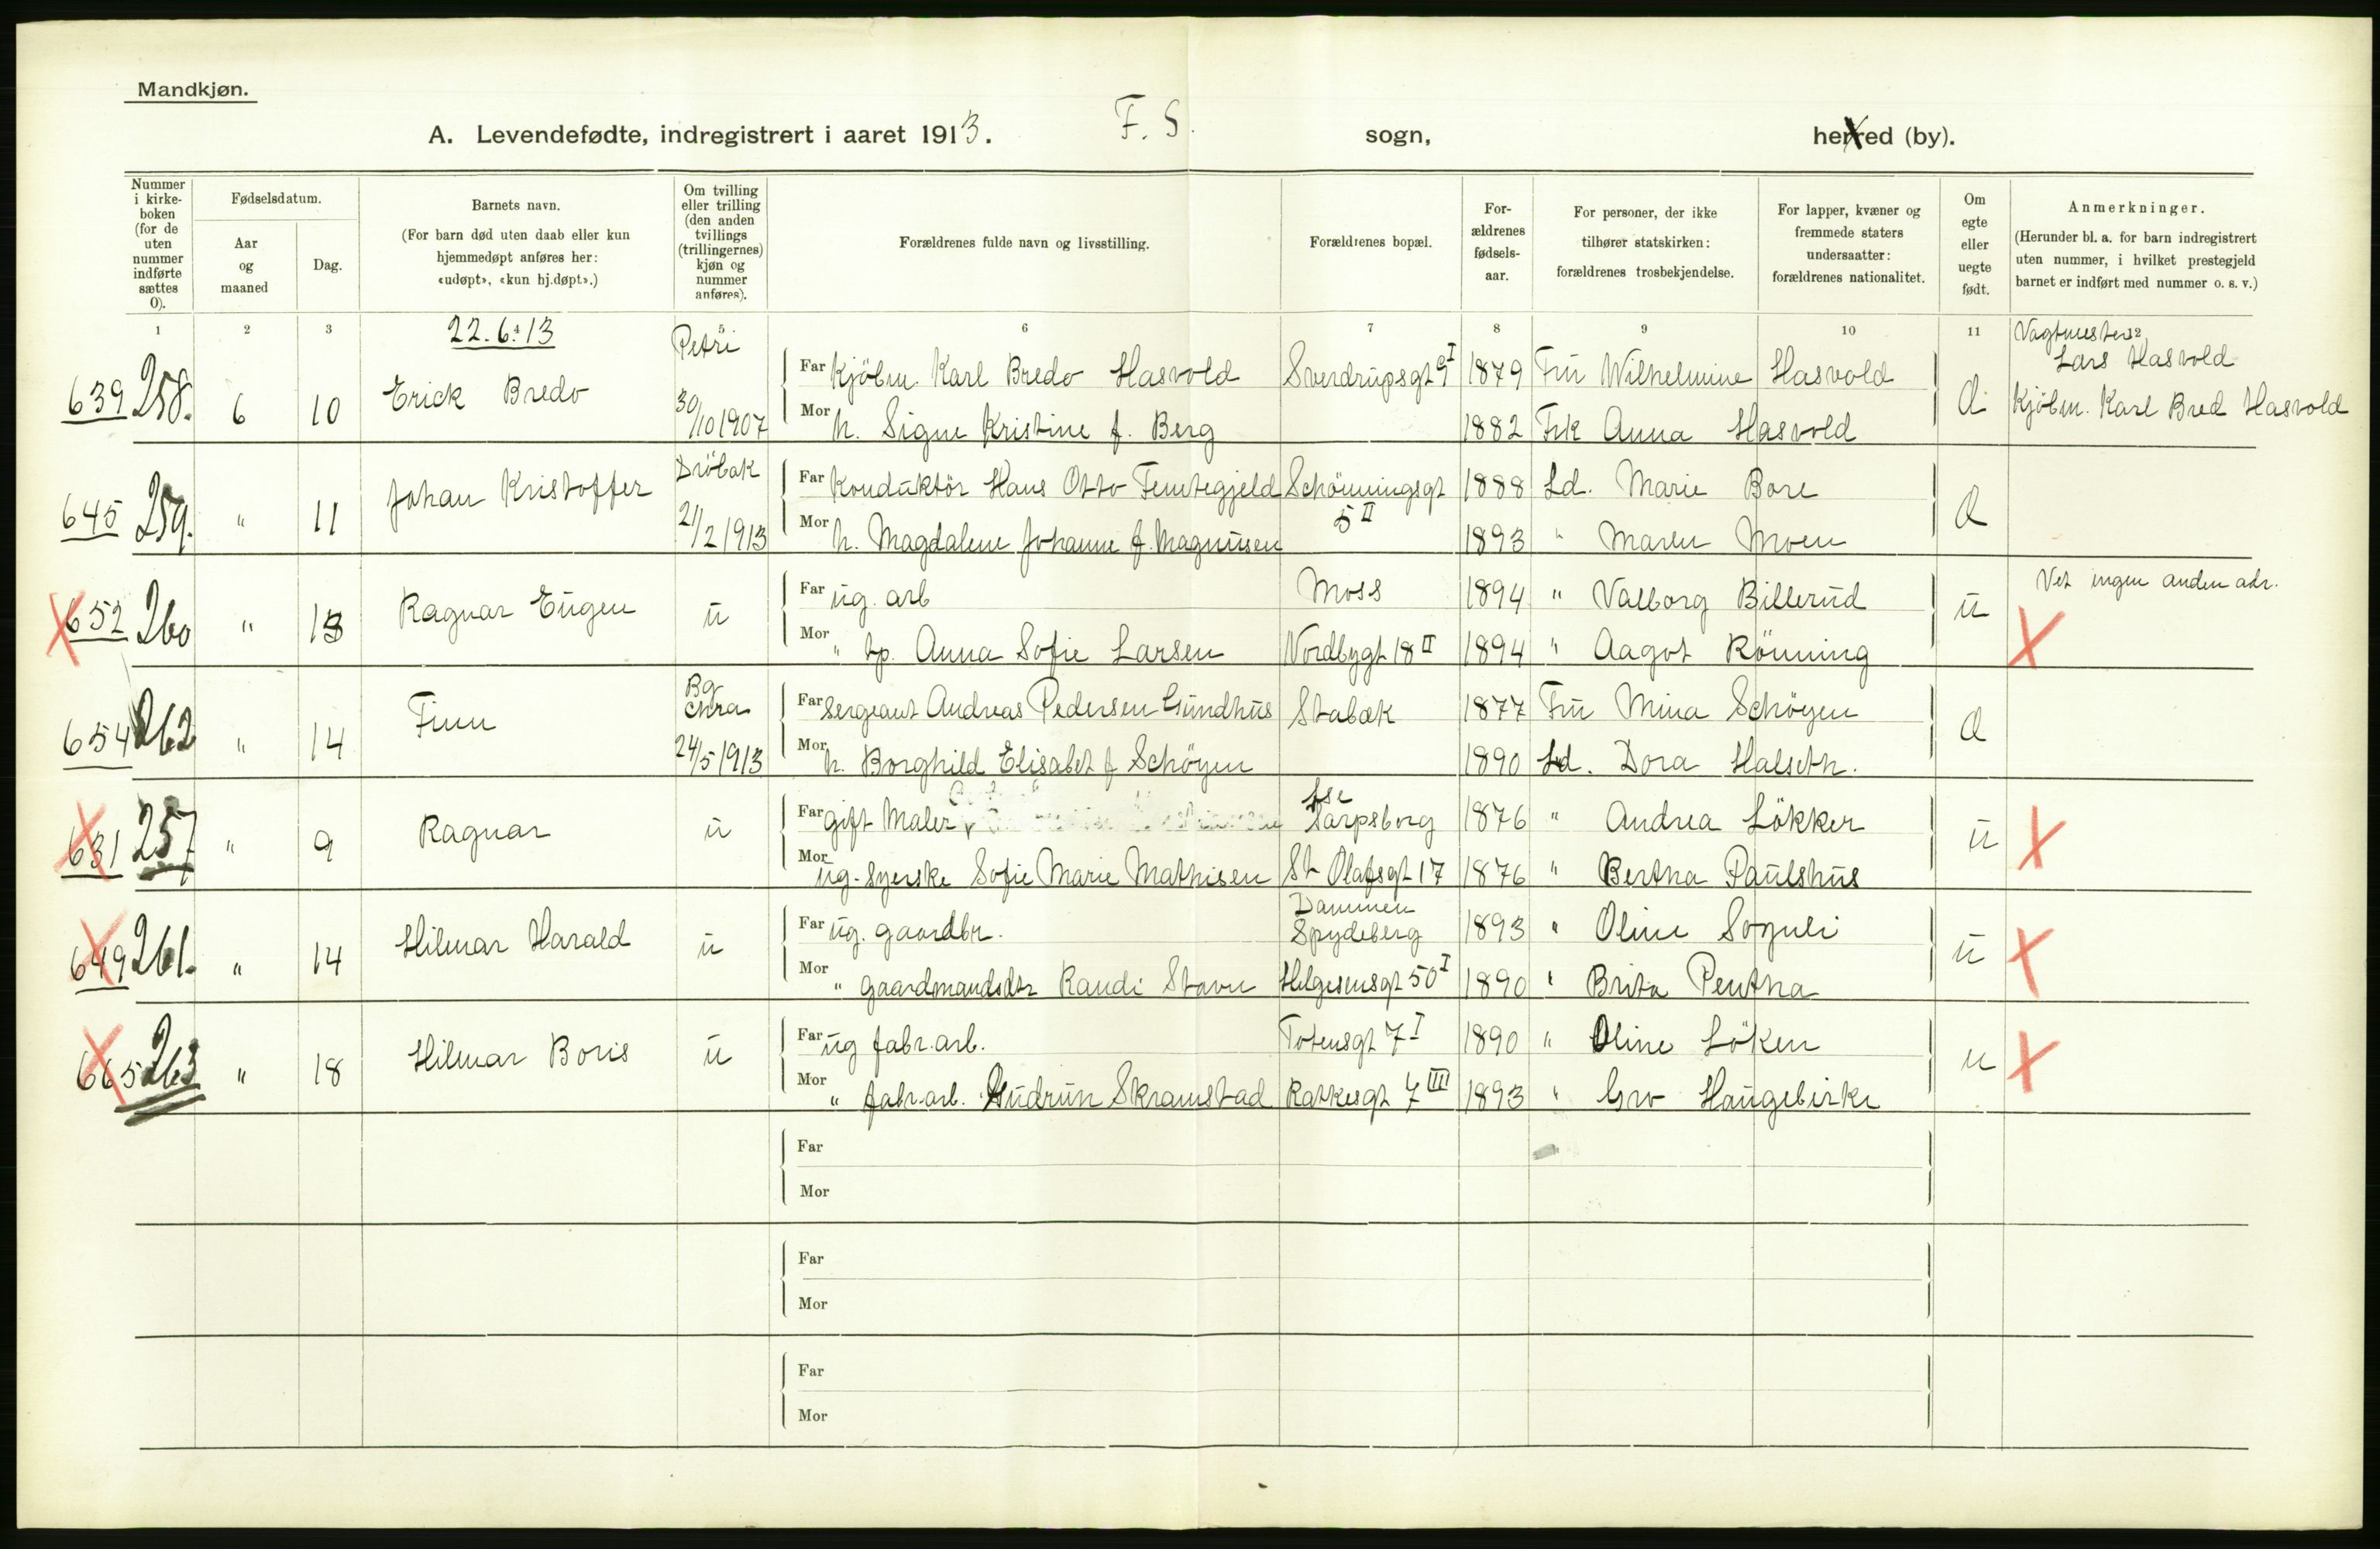 Mandkjøn.
A. Levendefødte, indregistrert i aaret 1913. F. S. sogn, herred (by).
Nummer i kirke-boken (for de uten nummer indførte sættes 0).
Fødselsdatum.
Aar og maaned
Dag.
Barnets navn.
(For barn død uten daab eller kun hjemmedøpt anføres her: «udøpt», «kun hj.døpt».)
Om tvilling eller trilling (den anden tvillings (trillingernes) kjøn og nummer anføres).
Forældrenes fulde navn og livsstilling.
Forældrenes bopæl.
For-ældrenes fødsels-aar.
For personer, der ikke tilhører statskirken: forældrenes trosbekjendelse.
For lapper, kvæner og fremmede staters undersaatter: forældrenes nationalitet.
Om egte eller uegte født.
Anmerkninger.
(Herunder bl. a. for barn indregistrert uten nummer, i hvilket prestegjeld barnet er indført med nummer o. s. v.)
1 2 3 4 5 6 7 8 9 10 11 12
22.6.13 Petri Vagtmester
Lars Hasvold
639 258. 6 10 Erick Bredo 30/10 1907
Far Kjöbm. Karl Bredo Hasvold Sverdrupsgt 9 I 1879 Fru Wilhelmine Hasvold
Mor h. Signe Kristine f. Berg 1882 Frk Anna Hasvold
Kjöbm. Karl Bred Hasvold
645 259. " 11 Johan Kristoffer Dröbak 21/2 1913
Far Konduktör Hans Otto Femtegjeld Schönningsgt 5 II 1888 Ld. Marie Bore
Mor h. Magdalene Johanne f. Magnusen 1893 " Maren Moen
652 260 " 13 Ragnar Eugen u
Far ug. arb Moss 1894 " Valborg Billerud u Vet ingen anden adr.
Mor " tp. Anna Sofie Larsen Nordbygt 18 II 1894 " Aagot Rönning X
654 262 " 14 Finn Bg Chra 24/5 1913
Far Sergeant Andreas Pedersen Gundhus Stabæk 1877 Fru Mina Schöyen
Mor h. Borghild Elisabet f Schöyen 1890 Ld. Dora Halseth.
631 257 " 9 Ragnar u
Far gift Maler Sarpsborg 1876 " Andrea Lökker u X
Mor ug. syerske Sofie Marie Mathisen St Olafsgt 17 1876 " Bertha Paulshus
649 261. " 14 Hilmar Harald u
Far ug. gaardbr. Dammen Spydeberg 1893 " Oline u X
Mor " gaardmandsdtr Randi Stavn Helgesensgt 50 I 1890 " Brita Pentha
665 263 " 18 Hilmar Boris u
Far ug fabr. arb. Totensgt 7 I 1890 " Oline Löken u X
Mor " fabr. arb. Gudrun Skramstad Ratkesgt 7 III 1893 " Gro Haugebirke
Far
Mor
Far
Mor
Far
Mor